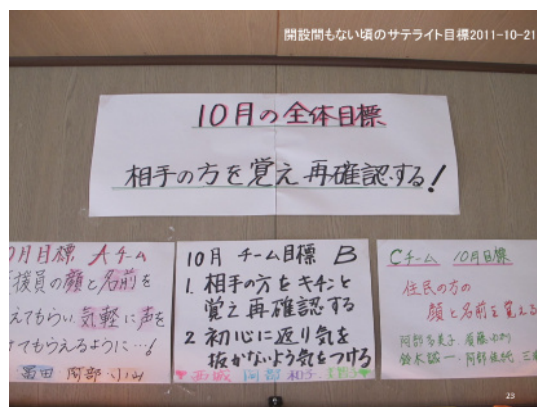 開設間もない頃のサテライト目標2011-10-21
10月の全体目標
相手の方を覚え再確認する!
月目標 Aチーム
援員の顔と名前を
えてもらい、気軽に声を
てもらえるように…!
冨田 阿部 小山
10月 チーム目標 B
1. 相手の方をキチンと
覚え再確認する
2 初心に返り気を
抜かないよう気をつける
西城 阿部 和子
Cチーム 10月目標
住民の方の
顔と名前を覚える
阿部多美子
鈴木誠一・阿部
23